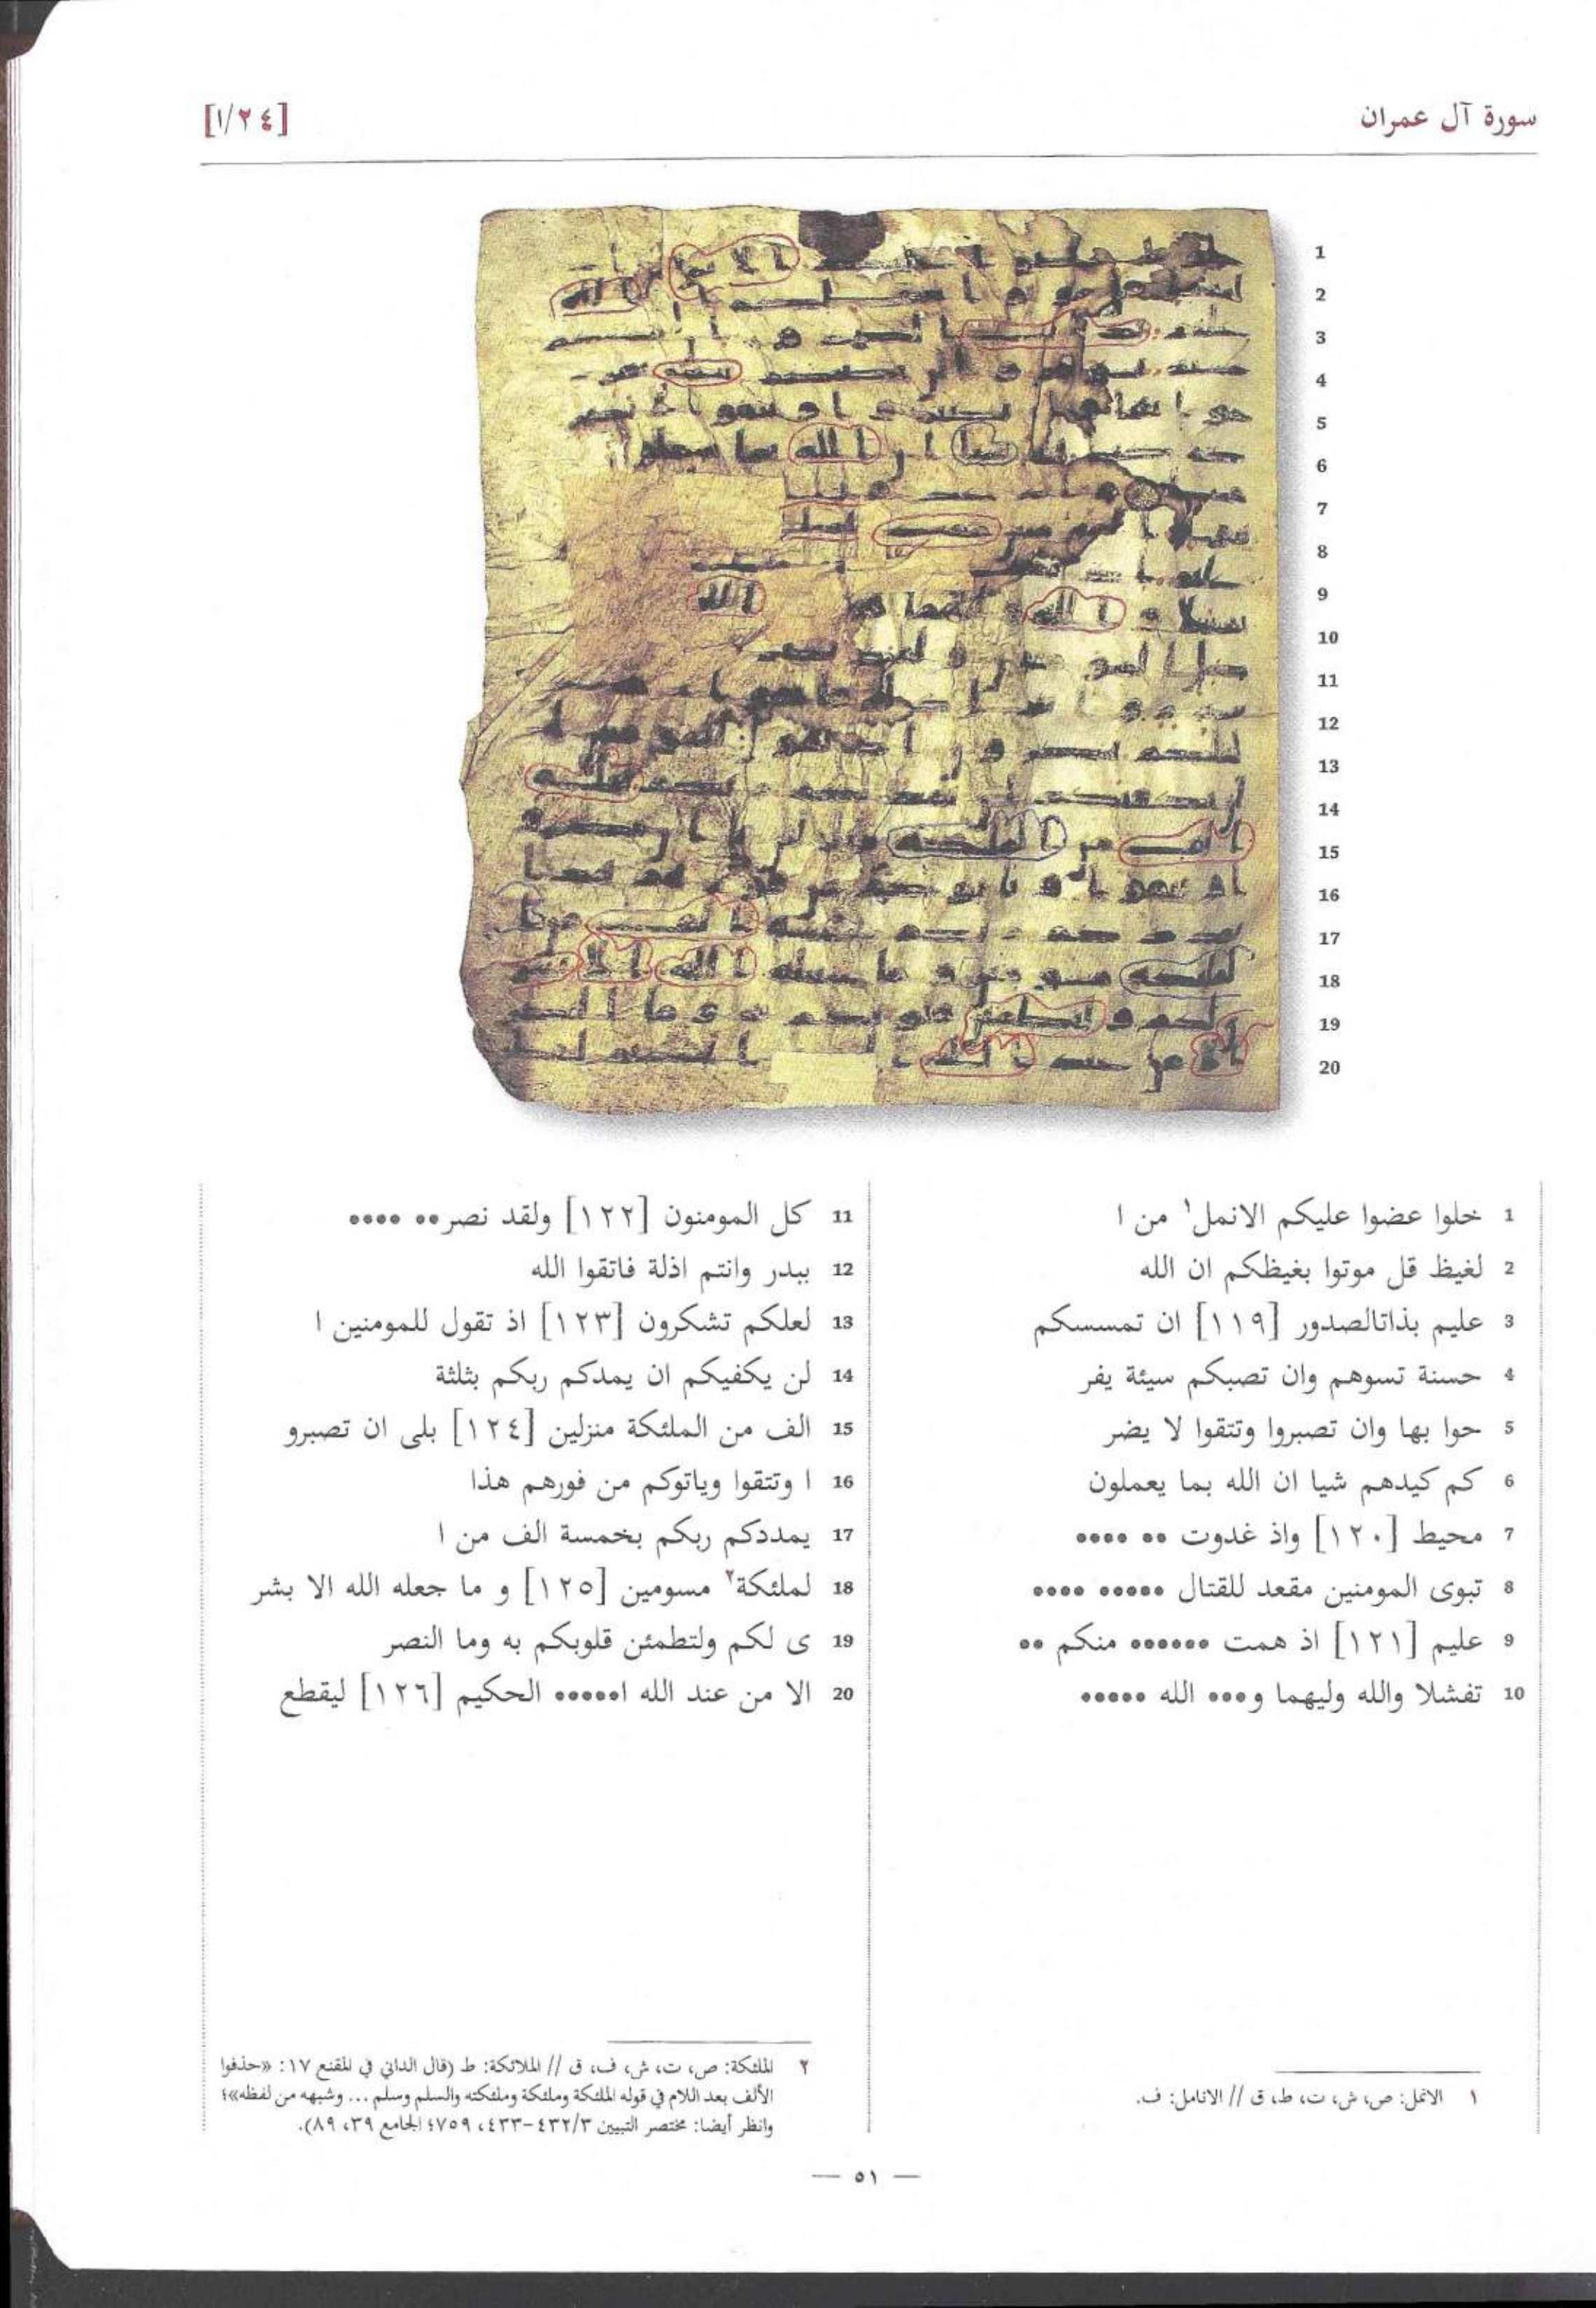 سورة آل عمران
[١/٢٤]
1 خلوا عضوا عليكم الانمل١ من ا
2 لغيظ قل موتوا بغيظكم ان الله
3 عليم بذاتالصدور [١١٩] ان تمسسكم
4 حسنة تسوهم وان تصبكم سيئة يفر
5 حوا بها وان تصبروا وتتقوا لا يضر
6 كم كيدهم شيا ان الله بما يعملون
7 محيط [١٢٠] واذ غدوت •• ••••
8 تبوى المومنين مقعد للقتال ••••• ••••
9 عليم [١٢١] اذ همت •••••• منكم ••
10 تفشلا والله وليهما و••• الله •••••
11 كل المومنون [١٢٢] ولقد نصر•• ••••
12 ببدر وانتم اذلة فاتقوا الله
13 لعلكم تشكرون [١٢٣] اذ تقول للمومنين ا
14 لن يكفيكم ان يمدكم ربكم بثلثة
15 الف من الملئكة منزلين [١٢٤] بلى ان تصبرو
16 ا وتتقوا وياتوكم من فورهم هذا
17 يمددكم ربكم بخمسة الف من ا
18 لملئكة٢ مسومين [١٢٥] و ما جعله الله الا بشر
19 ى لكم ولتطمئن قلوبكم به وما النصر
20 الا من عند الله ا••••• الحكيم [١٢٦] ليقطع
١ الانمل: ص، ش، ت، ط، ق // الانامل: ف.
٢ الملئكة: ص، ت، ش، ف، ق // الملائكة: ط (قال الداني في المقنع ١٧: «حذفوا
الألف بعد اللام في قوله الملئكة وملئكة وملئكته والسلم وسلم ... وشبهه من لفظه»؛
وانظر أيضا: مختصر التبيين ٤٣٢/٣-٤٣٣، ٧٥٩؛ الجامع ٣٩، ٨٩).
— ٥١ —